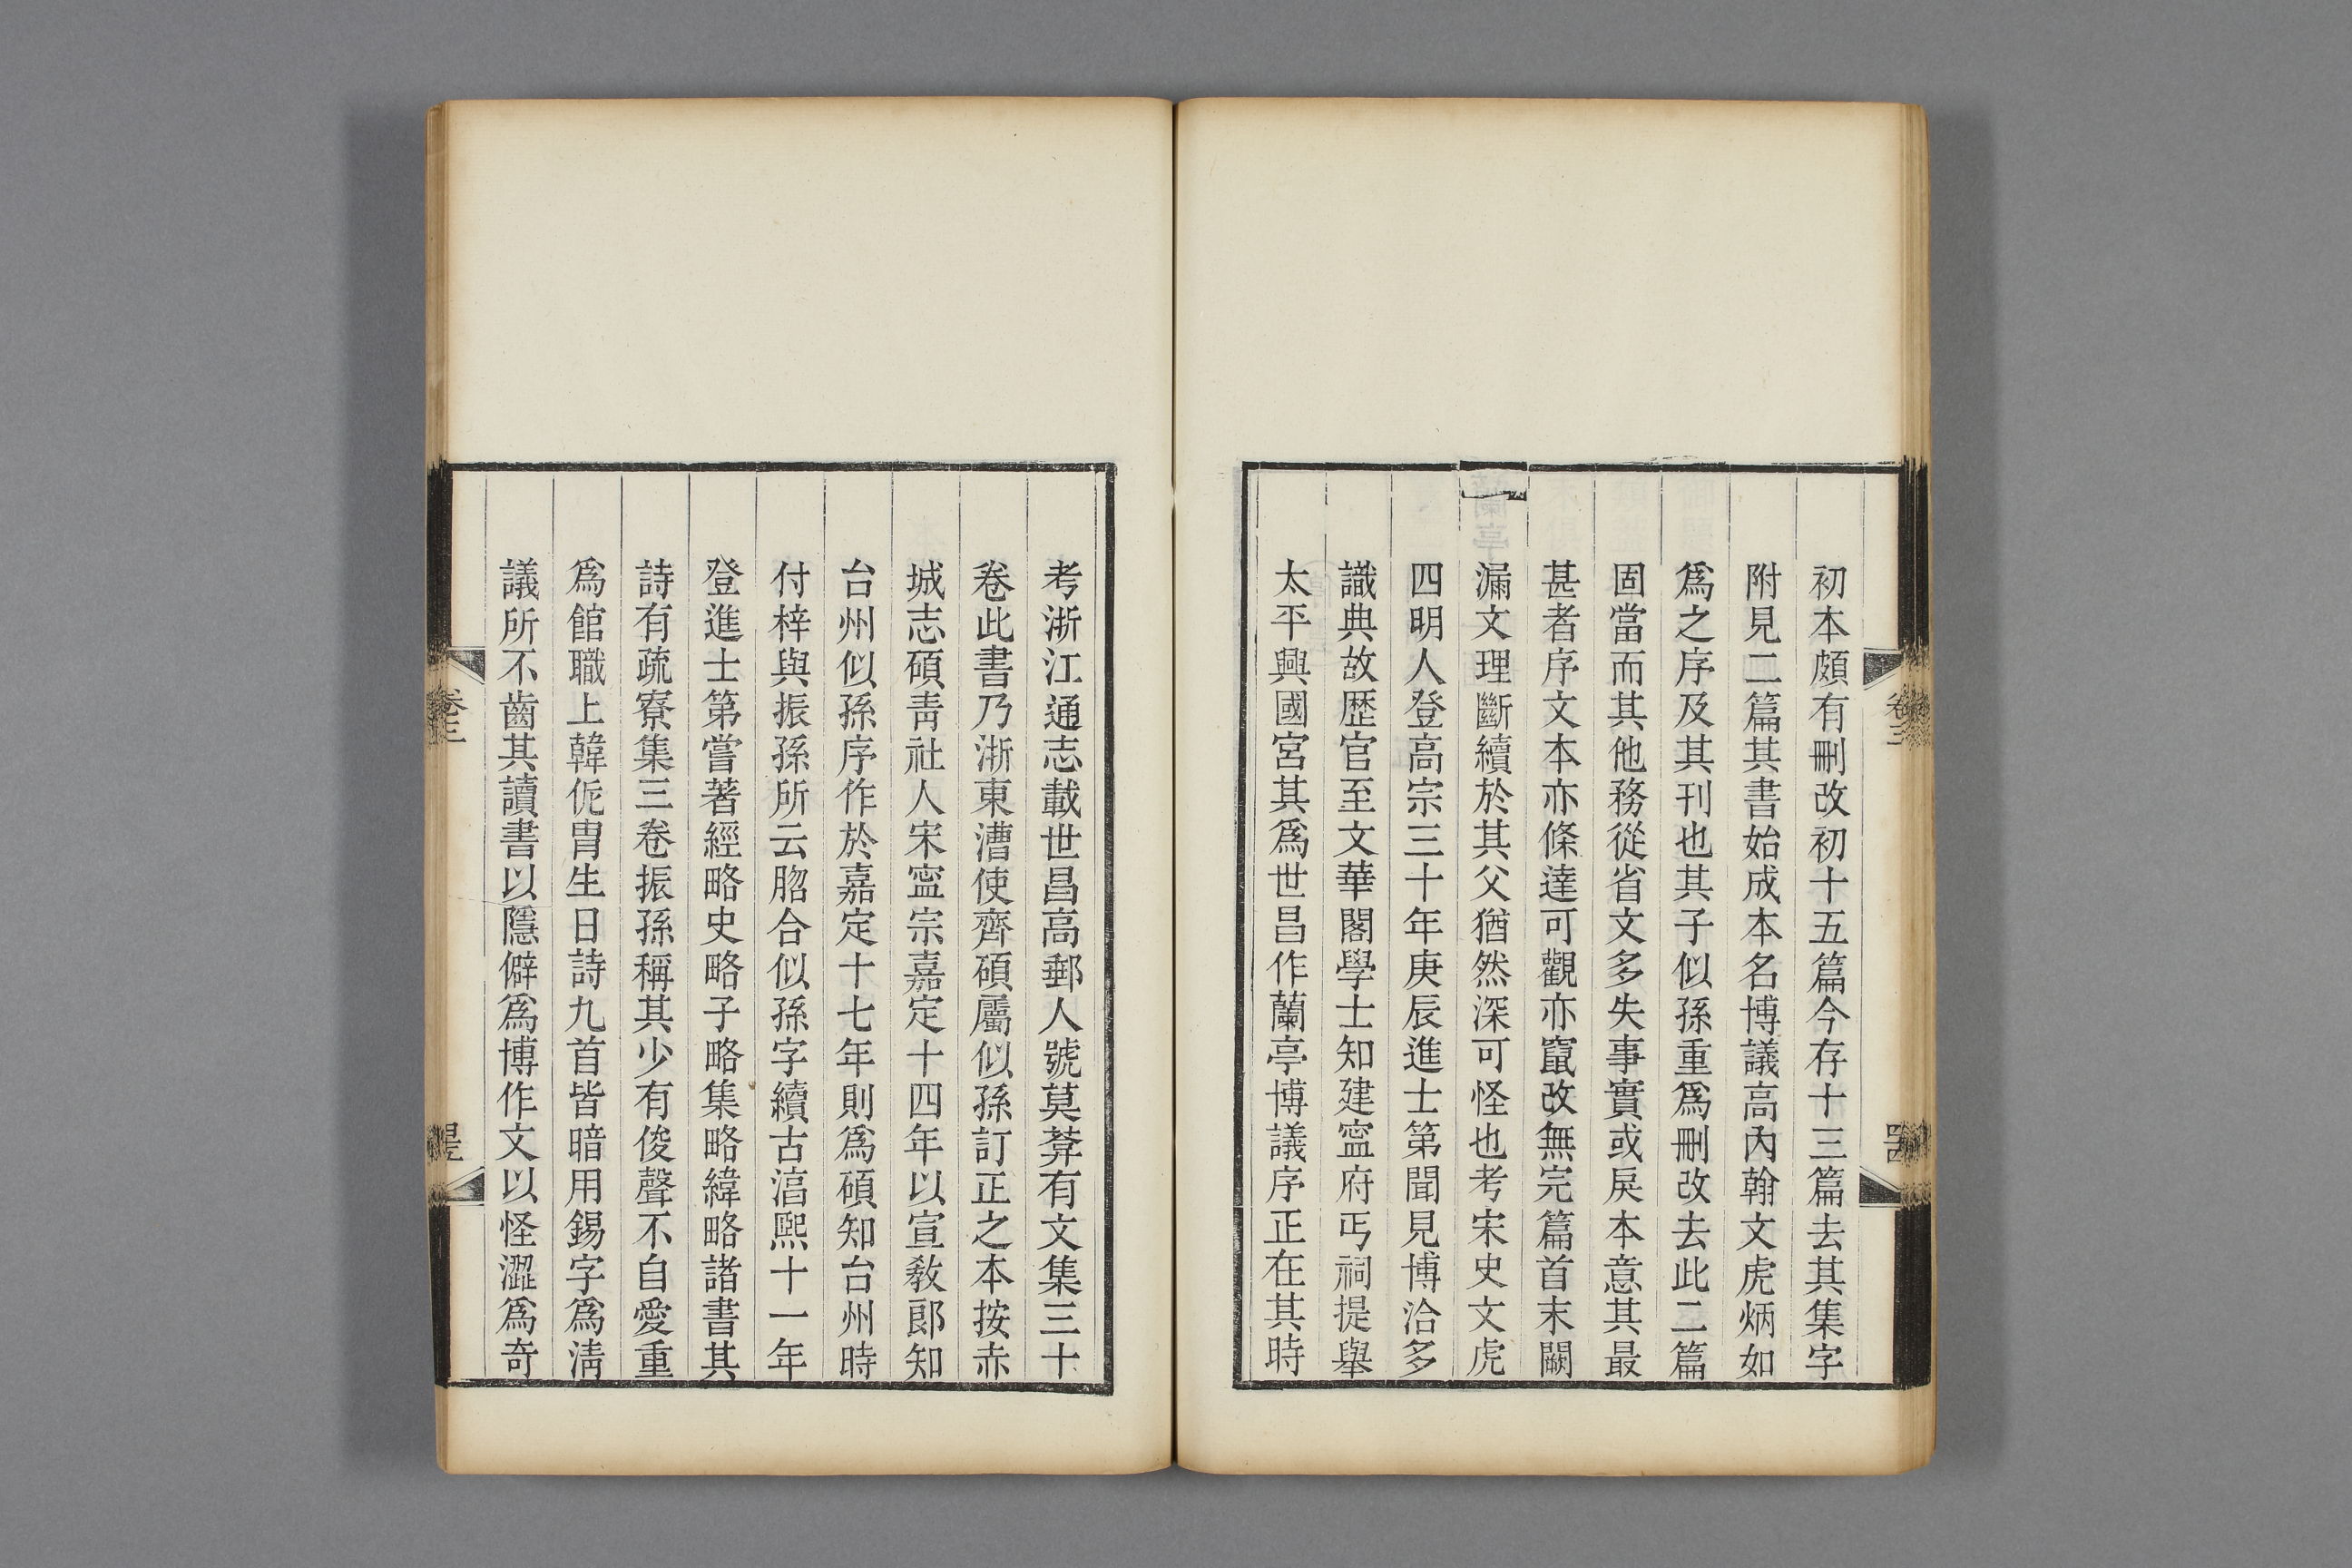 初本頗有刪改初十五篇今存十三篇去其集字
附見二篇其書始成本名博議高內翰文虎炳如
爲之序及其刊也其子似孫重爲刪改去此二篇
固當而其他務從省文多失事實或戾本意其最
甚者序文本亦條達可觀亦竄改無完篇首末闕
漏文理斷續於其父猶然深可怪也考宋史文虎
四明人登高宗三十年庚辰進士第聞見博洽多
識典故歴官至文華閣學士知建寍府丐祠提舉
太平興國宮其爲世昌作蘭亭博議序正在其時
考浙江通志載世昌高郵人號莫莽有文集三十
卷此書乃浙東漕使齊碩屬似孫訂正之本按赤
城志碩靑社人宋寍宗嘉定十四年以宣敎郎知
台州似孫序作於嘉定十七年則爲碩知台州時
付梓與振孫所云脗合似孫字續古湻熙十一年
登進士第嘗著經略史略子略集略緯略諸書其
詩有疏寮集三卷振孫稱其少有俊聲不自愛重
爲館職上韓侂胄生日詩九首皆暗用錫字爲淸
議所不齒其讀書以隱僻爲博作文以怪澀爲奇
卷三